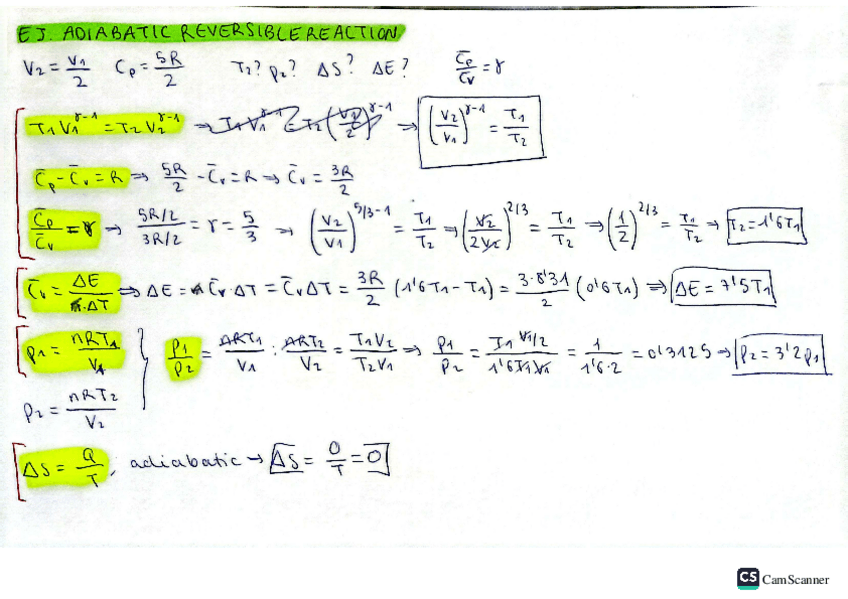 EJ. ADIABATIC REVERSIBLE REACTION
V₂ = V₁/2 Cp = 5R/2 T₂? P₂? ΔS? ΔE? C̄p/C̄v = γ
T₁V₁^γ-1 = T₂V₂^γ-1 → T₁V₁^γ-1 = T₂(V₁/2)^γ-1 → (V₂/V₁)^γ-1 = T₁/T₂
C̄p - C̄v = R → 5R/2 - C̄v = R → C̄v = 3R/2
C̄p/C̄v = γ → (5R/2)/(3R/2) = γ = 5/3 → (V₂/V₁)^5/3-1 = T₁/T₂ → (V₂/2V₂)^2/3 = T₁/T₂ → (1/2)^2/3 = T₁/T₂ → T₂ = 1'6T₁
C̄v = ΔE/n·ΔT → ΔE = n C̄v·ΔT = C̄vΔT = 3R/2 (1'6T₁ - T₁) = 3·8'31/2 (0'6T₁) → ΔE = 7'5T₁
P₁ = nRT₁/V₁ } P₁/P₂ = nRT₁/V₁ : nRT₂/V₂ = T₁V₂/T₂V₁ → P₁/P₂ = T₁ V₁/2 / 1'6T₁V₁ = 1/1'6·2 = 0'3125 → P₂ = 3'2P₁
P₂ = nRT₂/V₂
ΔS = Q/T; adiabatic → ΔS = 0/T = 0
CS CamScanner